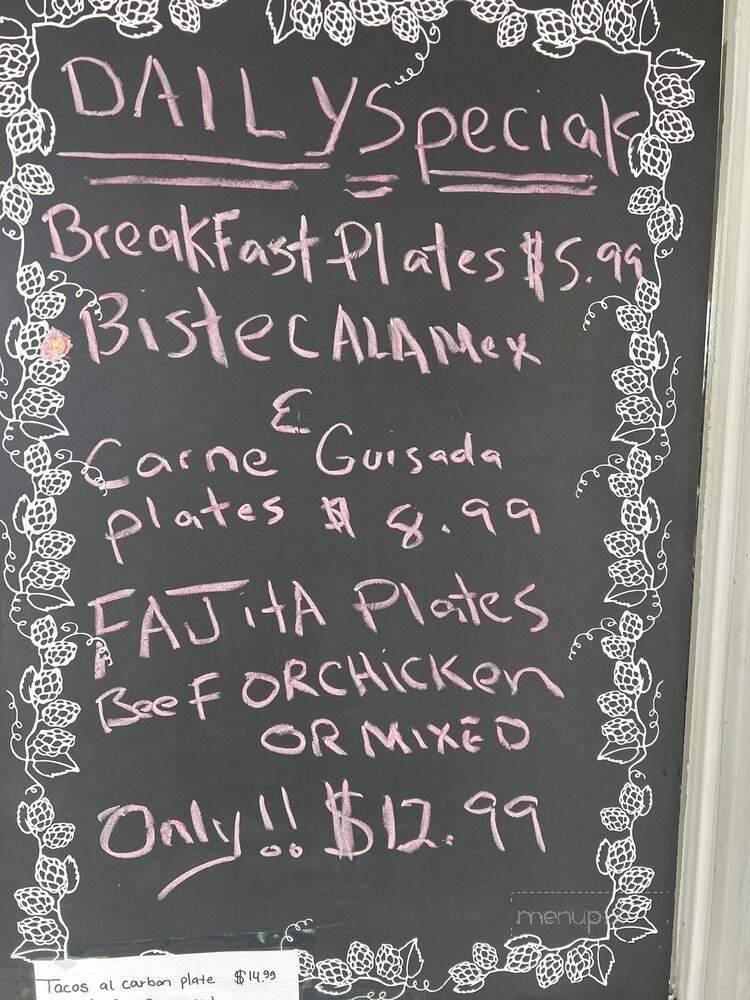 DAILY Specials
BreakFast Plates $5.99
Bistec ALA Mex
&
Carne Guisada
plates $ 8.99
FAJitA Plates
BeeF OR CHicKen
OR MIXED
Only!! $12.99
menup
Tacos al carbon plate $14.99